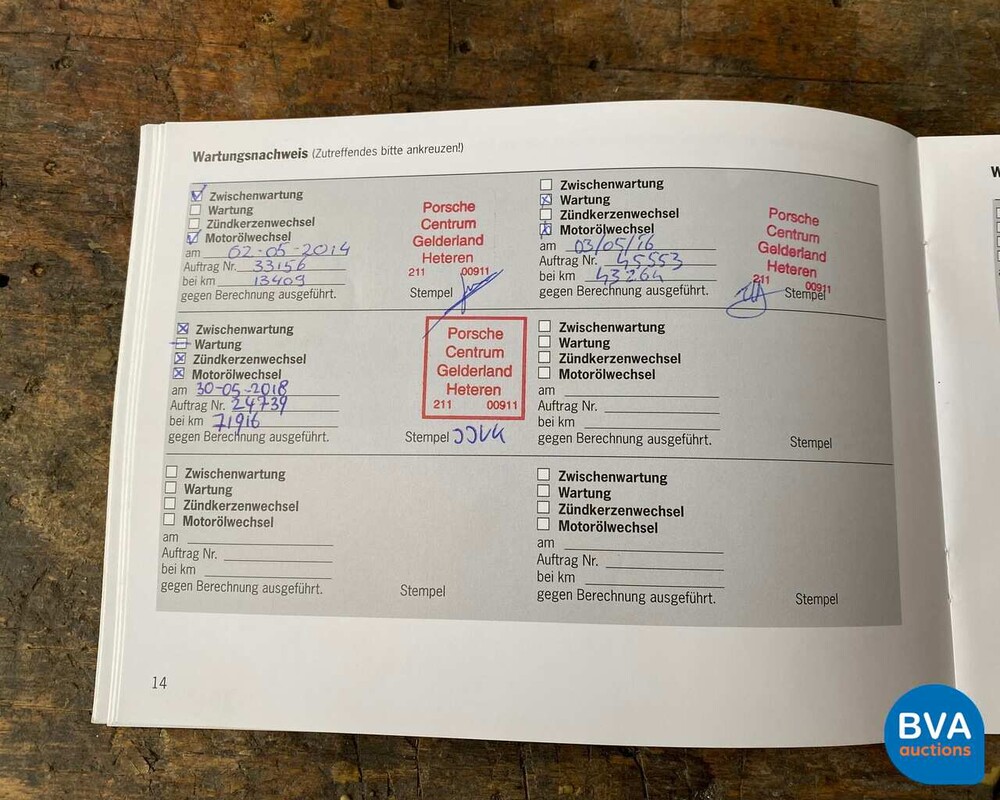 Wartungsnachweis (Zutreffendes bitte ankreuzen!)
Zwischenwartung
Wartung
Zündkerzenwechsel
Motorölwechsel
am 02-05-2014
Auftrag Nr. 33156
bei km 13409
gegen Berechnung ausgeführt.
Porsche
Centrum
Gelderland
Heteren
211 00911
Stempel
Zwischenwartung
Wartung
Zündkerzenwechsel
Motorölwechsel
am 03/05/16
Auftrag Nr. 45553
bei km 43264
gegen Berechnung ausgeführt.
Porsche
Centrum
Gelderland
Heteren
211 00911
Stempel
Zwischenwartung
Wartung
Zündkerzenwechsel
Motorölwechsel
am 30-05-2018
Auftrag Nr. 24739
bei km 71916
gegen Berechnung ausgeführt.
Porsche
Centrum
Gelderland
Heteren
211 00911
Stempel
Zwischenwartung
Wartung
Zündkerzenwechsel
Motorölwechsel
am
Auftrag Nr.
bei km
gegen Berechnung ausgeführt.
Stempel
Zwischenwartung
Wartung
Zündkerzenwechsel
Motorölwechsel
am
Auftrag Nr.
bei km
gegen Berechnung ausgeführt.
Stempel
Zwischenwartung
Wartung
Zündkerzenwechsel
Motorölwechsel
am
Auftrag Nr.
bei km
gegen Berechnung ausgeführt.
Stempel
14
W
BVA
auctions